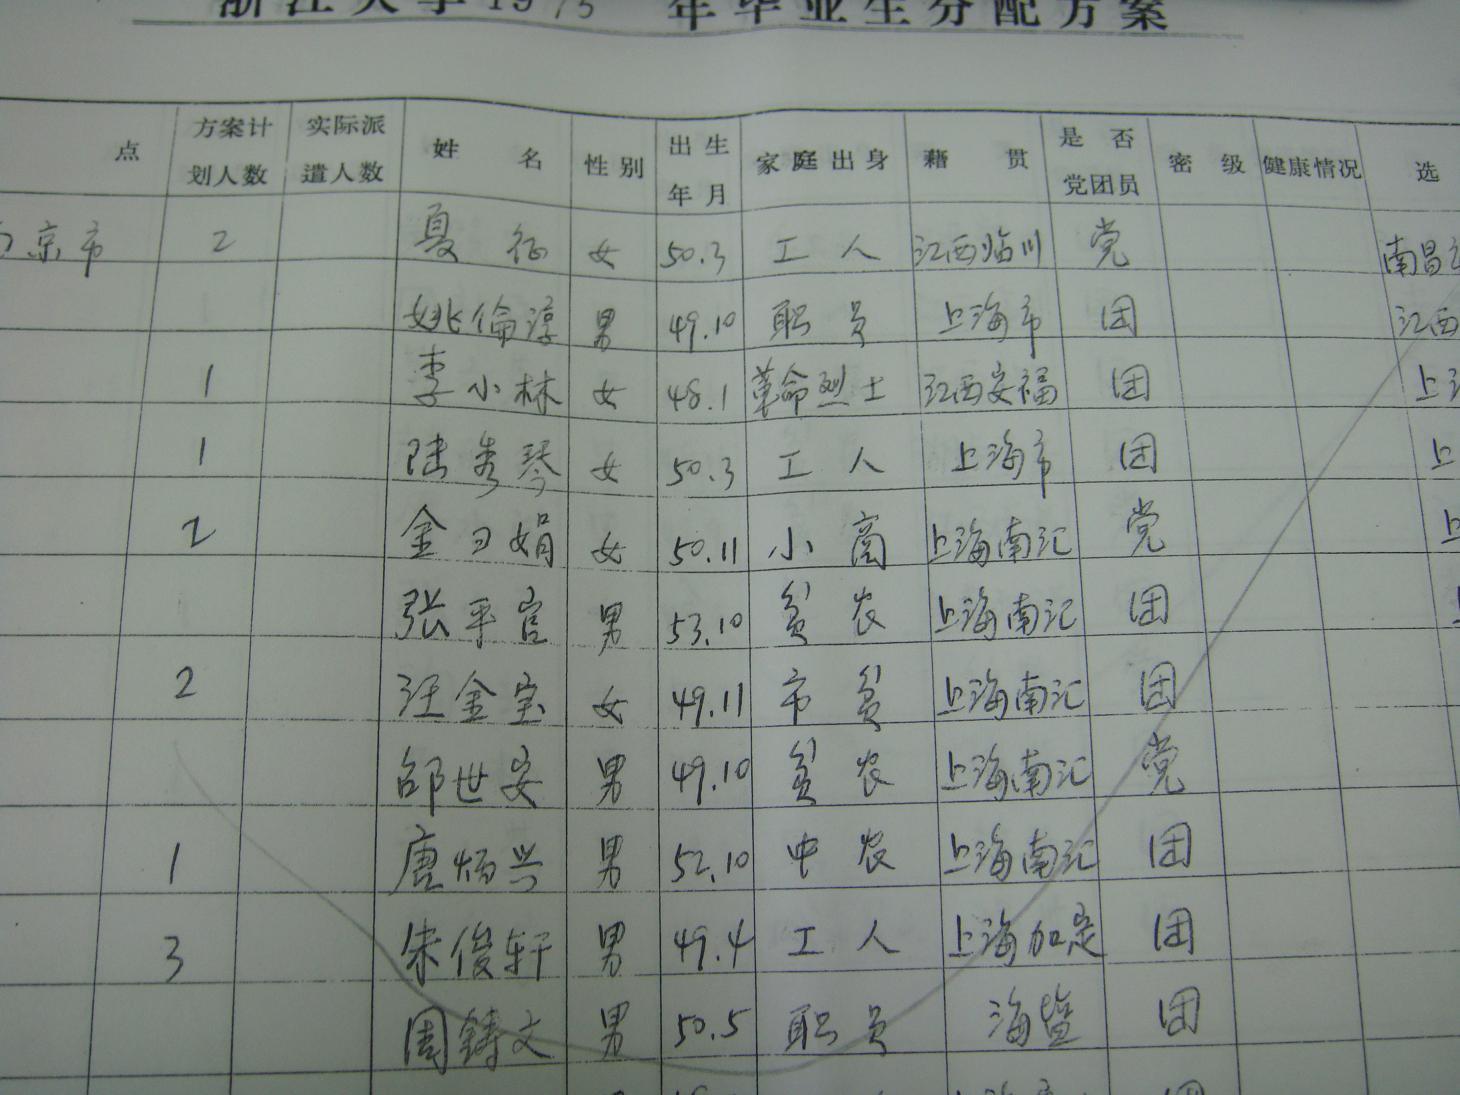 浙江大学1975年毕业生分配方案
点 方案计划人数 实际派遣人数 姓名 性别 出生年月 家庭出身 籍贯 是否党团员 密级 健康情况 选
京市 2 夏征 女 50.3 工人 江西临川 党 南昌
姚倫淳 男 49.10 职员 上海市 团 江西
1 李小林 女 48.1 革命烈士 江西安福 团 上
1 陆秀琴 女 50.3 工人 上海市 团 上
2 金日娟 女 50.11 小商 上海南汇 党 上
张平官 男 53.10 贫农 上海南汇 团
2 汪金宝 女 49.11 市贫 上海南汇 团
邵世安 男 49.10 贫农 上海南汇 党
1 唐炳兴 男 52.10 中农 上海南汇 团
3 朱俊轩 男 49.4 工人 上海加定 团
周鋳文 男 50.5 职员 海盐 团